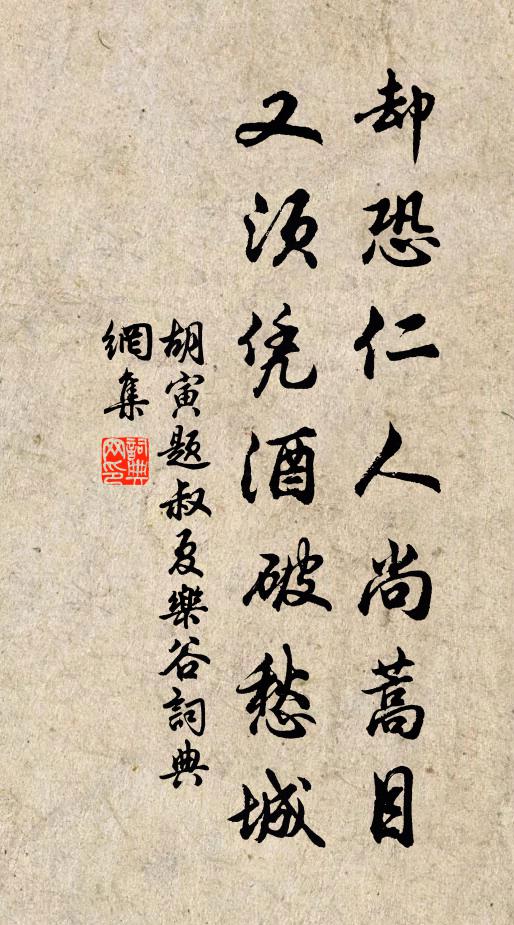 却恐仁人尚蒿目
又须凭酒破愁城
胡寅题叔夏樂谷詞典
網集
詞典网印